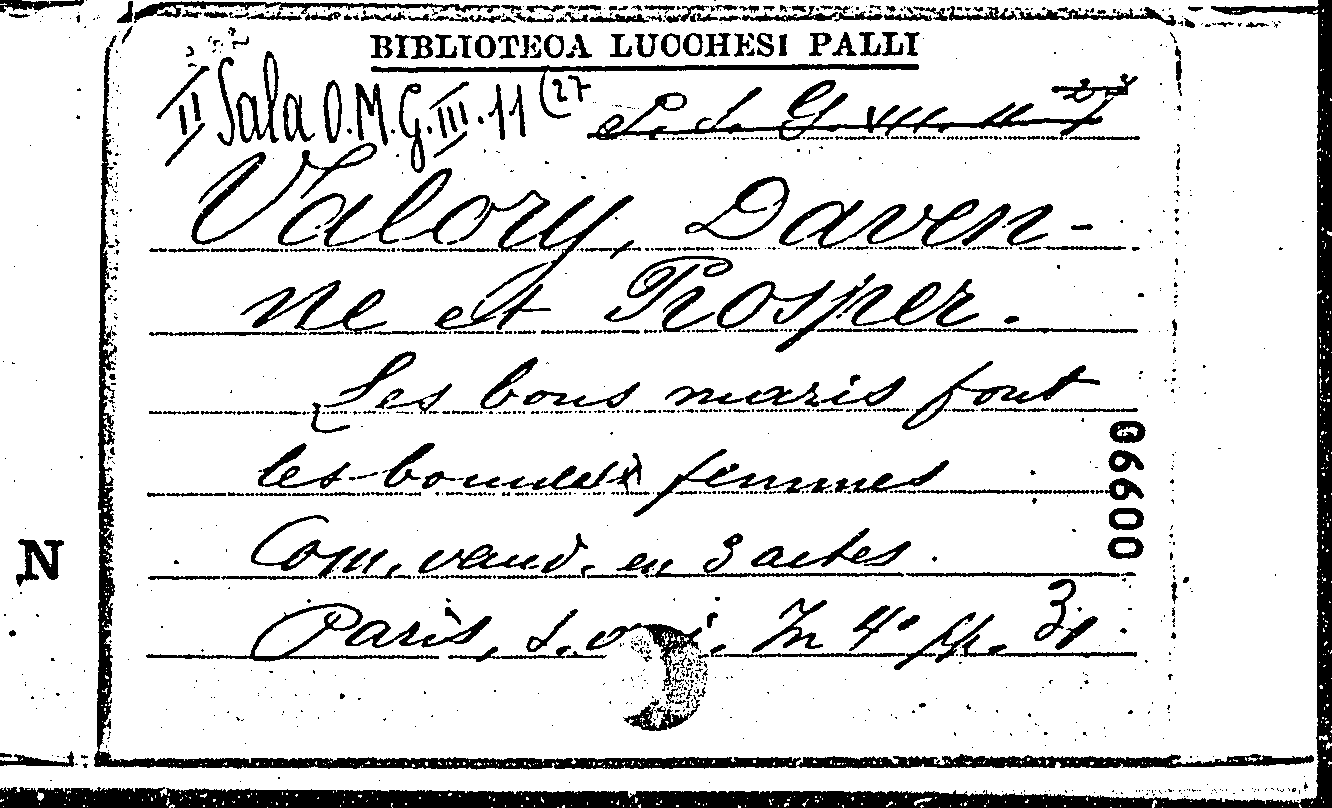 BIBLIOTECA LUCCHESI PALLI
II Sala O.M.G.III.11 (27
Valory, Daven-
ne et Prosper.
Les bons maris font
les bonnes femmes
Com. vaud. en 3 actes.
Paris, s. i. In 4° pp.
00660
N